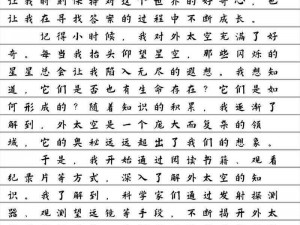 让我在寻找答案的过程中不断成长。
记得小时候，我对外太空充满了好
奇。每当我抬头仰望星空，那些闪烁的
星星总会让我陷入无尽的遐想。我想知
道，它们是否也有生命存在？它们是如
何形成的？随着知识的积累，我逐渐了
解到，外太空是一个庞大而复杂的领
域，它的奥秘远远超出了我们的想象。
于是，我开始通过阅读书籍、观看
纪录片等方式，深入了解外太空的知
识。我了解到，科学家们通过发射探测
器、观测望远镜等手段，不断揭开外太